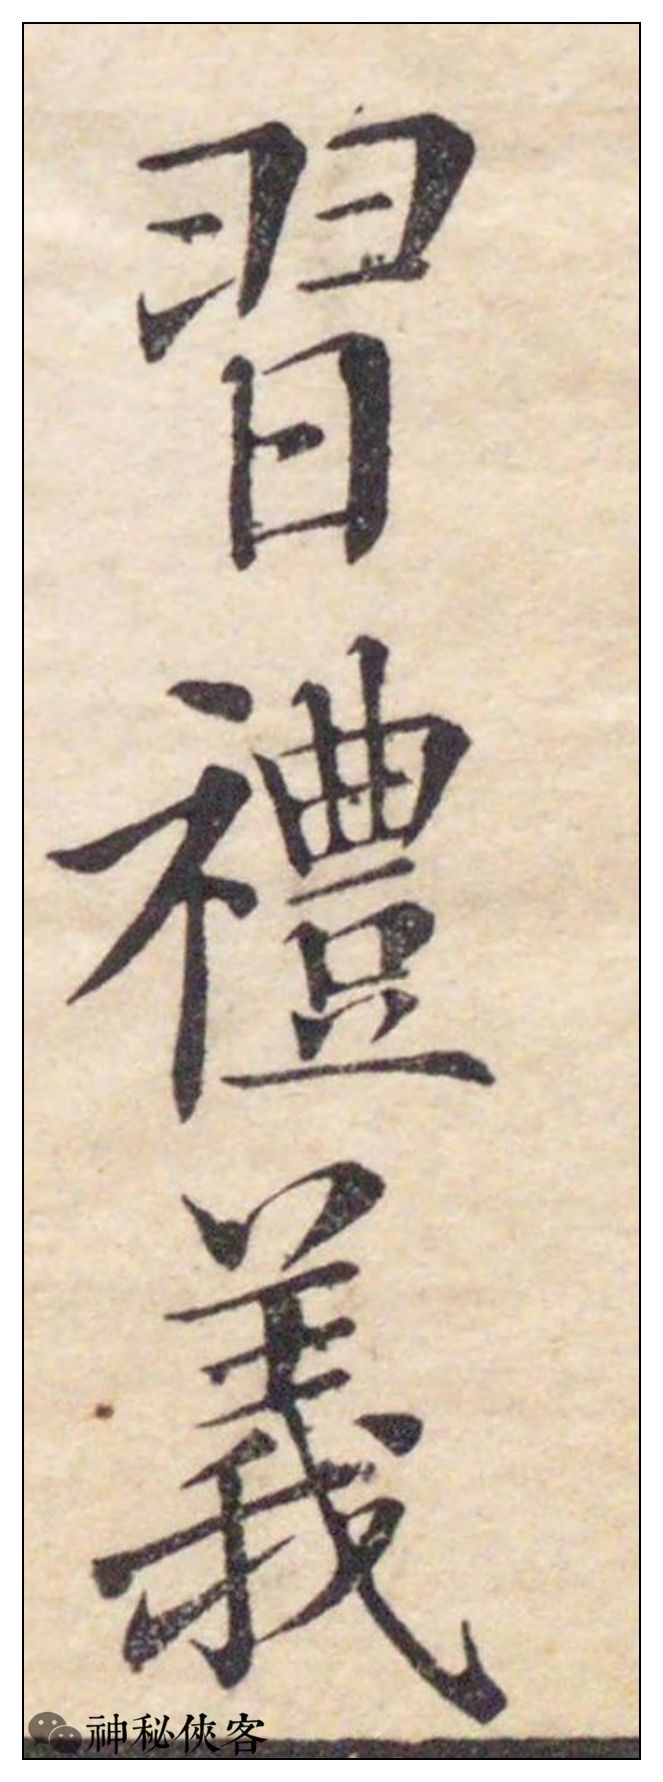 習禮義
神秘俠客